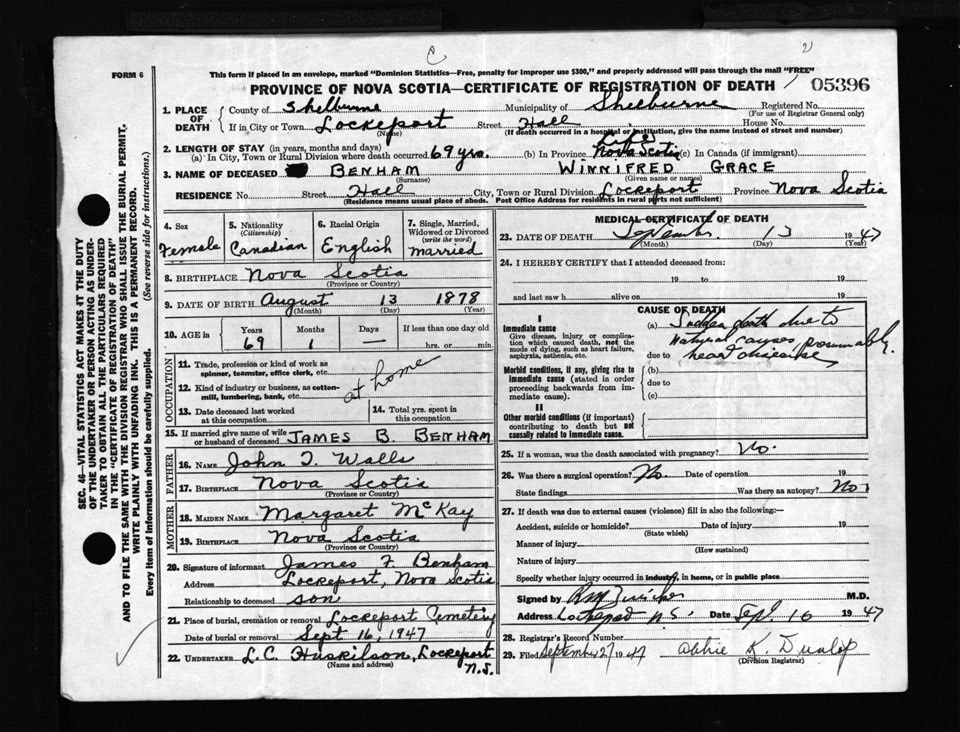 C
2
FORM 6
This form if placed in an envelope, marked "Dominion Statistics—Free, penalty for improper use $300," and properly addressed will pass through the mail "FREE"
PROVINCE OF NOVA SCOTIA—CERTIFICATE OF REGISTRATION OF DEATH
05396
1. PLACE OF DEATH
County of Shelburne Municipality of Shelburne Registered No.
(For use of Registrar General only)
If in City or Town Lockeport Street Hall House No.
(Name) (If death occurred in a hospital or institution, give the name instead of street and number)
2. LENGTH OF STAY (in years, months and days) Life
(a) In City, Town or Rural Division where death occurred 69 yrs. (b) In Province Nova Scotia (c) In Canada (if immigrant)
3. NAME OF DECEASED BENHAM WINNIFRED GRACE
(Surname) (Given name or names)
RESIDENCE No. Street Hall City, Town or Rural Division Lockeport Province Nova Scotia
(Residence means usual place of abode. Post Office Address for residents in rural parts not sufficient)
4. Sex
Female
5. Nationality
(Citizenship)
Canadian
6. Racial Origin
English
7. Single, Married, Widowed or Divorced
(write the word)
married
8. BIRTHPLACE Nova Scotia
(Province or Country)
9. DATE OF BIRTH August 13 1878
(Month) (Day) (Year)
10. AGE in
Years Months Days If less than one day old
69 1 — hrs. or min.
OCCUPATION
11. Trade, profession or kind of work as spinner, teamster, office clerk, etc.
at home
12. Kind of industry or business, as cotton-mill, lumbering, bank, etc.
13. Date deceased last worked at this occupation
14. Total yrs. spent in this occupation
15. If married give name of wife or husband of deceased JAMES B. BENHAM
FATHER
16. NAME John T. Walls
17. BIRTHPLACE Nova Scotia
(Province or Country)
MOTHER
18. MAIDEN NAME Margaret McKay
19. BIRTHPLACE Nova Scotia
(Province or Country)
20. Signature of informant James F. Benham
Address Lockeport, Nova Scotia
Relationship to deceased son
21. Place of burial, cremation or removal Lockeport Cemetery
Date of burial or removal Sept 16, 1947
22. UNDERTAKER L.C. Huskilson, Lockeport
N.S.
(Name and address)
MEDICAL CERTIFICATE OF DEATH
23. DATE OF DEATH September 13 1947
(Month) (Day) (Year)
24. I HEREBY CERTIFY that I attended deceased from:
19 to 19
and last saw h alive on 19
CAUSE OF DEATH
I
Immediate cause
Give disease, injury or complication which caused death, not the mode of dying, such as heart failure, asphyxia, asthenia, etc.
(a) Sudden death due to
Natural causes presumably
due to heart disease
Morbid conditions, if any, giving rise to immediate cause (stated in order proceeding backwards from immediate cause).
(b)
due to
(c)
II
Other morbid conditions (if important) contributing to death but not causally related to immediate cause.
25. If a woman, was the death associated with pregnancy? No.
26. Was there a surgical operation? No. Date of operation 19
State findings Was there an autopsy? No
27. If death was due to external causes (violence) fill in also the following:—
Accident, suicide or homicide? Date of injury 19
(State which)
Manner of injury
(How sustained)
Nature of injury
Specify whether injury occurred in industry, in home, or in public place
Signed by M.D.
Address Lockeport N.S. Date Sept. 16 1947
28. Registrar's Record Number
29. Filed September 27 1947 Abbie K. Dunlop
(Division Registrar)
SEC. 46—VITAL STATISTICS ACT MAKES IT THE DUTY
OF THE UNDERTAKER OR PERSON ACTING AS UNDER-
TAKER TO OBTAIN ALL THE PARTICULARS REQUIRED
IN THE "CERTIFICATE OF REGISTRATION OF DEATH"
AND TO FILE THE SAME WITH THE DIVISION REGISTRAR WHO SHALL ISSUE THE BURIAL PERMIT.
WRITE PLAINLY WITH UNFADING INK. THIS IS A PERMANENT RECORD.
Every item of information should be carefully supplied. (See reverse side for instructions.)